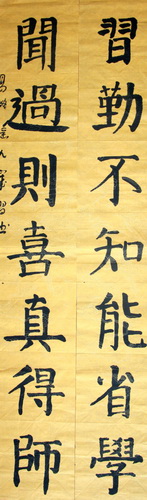 習勤不知能省學
聞過則喜真得師